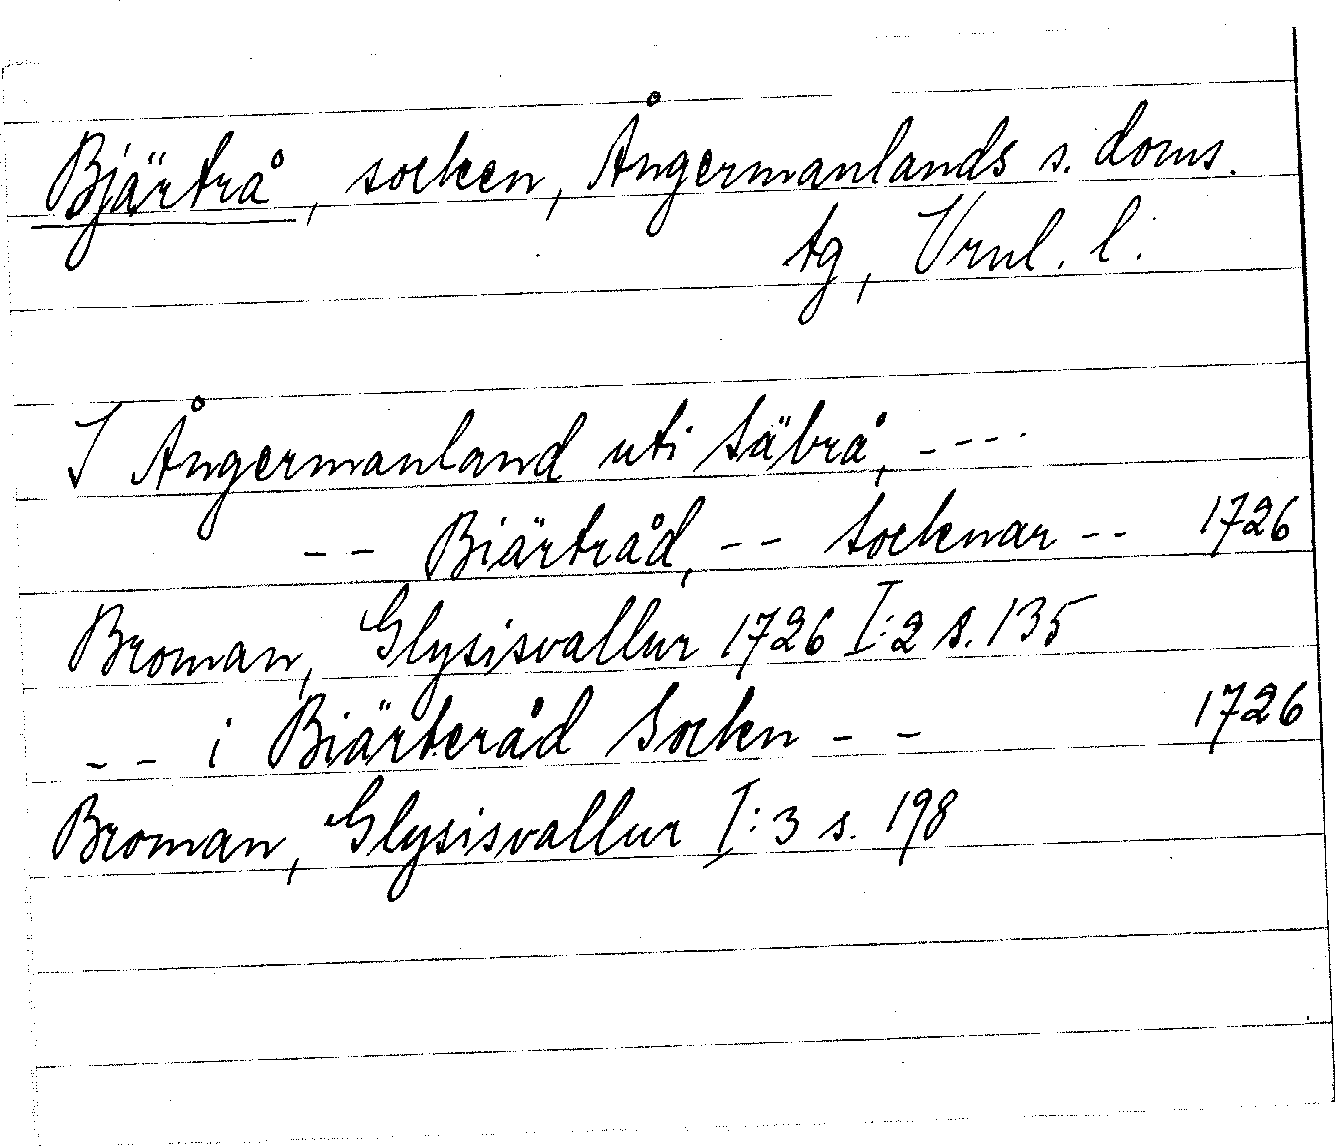 Bjärtrå, socken, Ångermanlands s. doms.
tg, Vrnl. l.
I Ångermanland uti Säbrå, - - - .
- - Biärtråd, - - Socknar - - 1726
Broman, Glysisvallur 1726 I:2 s. 135
- - i Biärteråd Sockn - - 1726
Broman, Glysisvallur I:3 s. 198